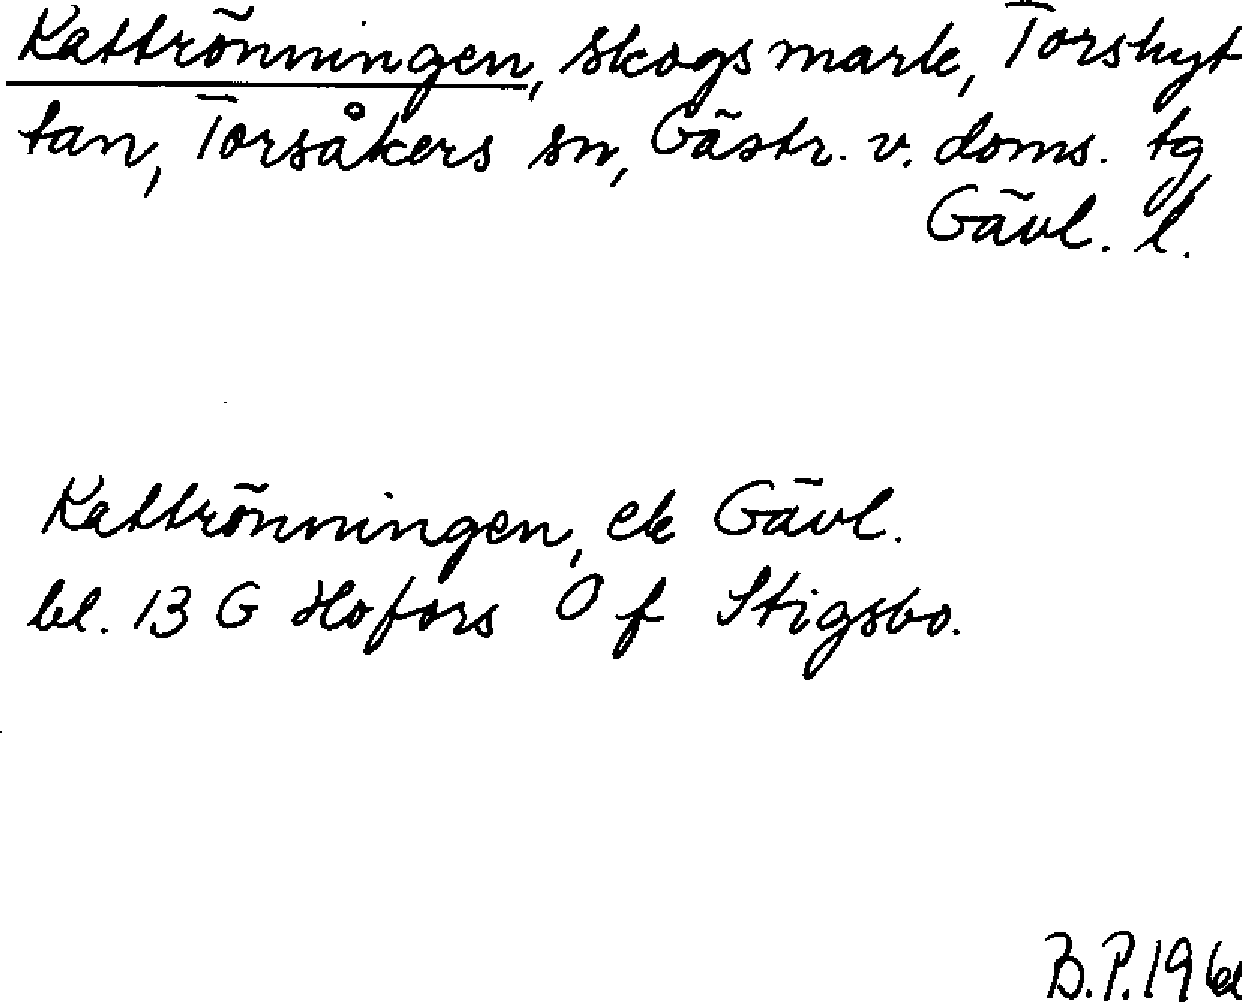 Kattrönningen, skogsmark, Torshyt
tan, Torsåkers sn, Gästr. v. doms. tg
Gävl. l.
Kattrönningen, ek Gävl.
bl. 13 G Hofors 0 f Stigsbo.
B.P.196